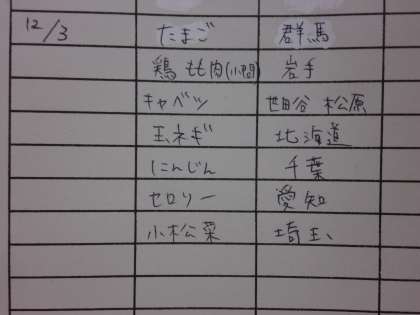 12/3 たまご 群馬
鶏もも肉(小間) 岩手
キャベツ 世田谷 松原
玉ネギ 北海道
にんじん 千葉
セロリー 愛知
小松菜 埼玉